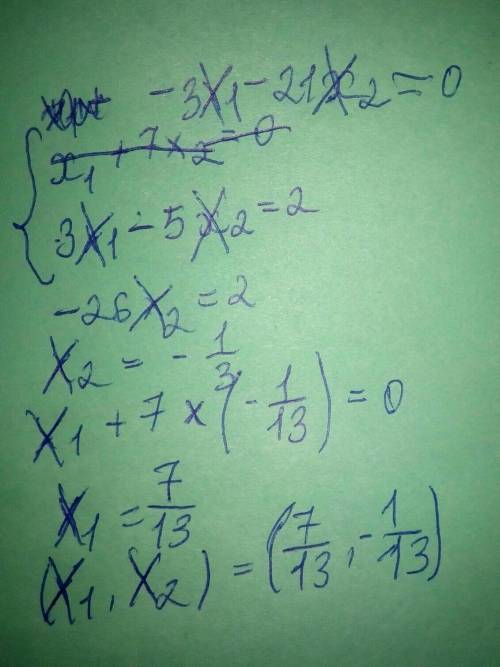 -3x₁ - 21x₂ = 0
x₁ + 7x₂ = 0
3x₁ - 5x₂ = 2
-26x₂ = 2
x₂ = - 1/3
x₁ + 7 × (- 1/13) = 0
x₁ = 7/13
(x₁, x₂) = (7/13, - 1/13)